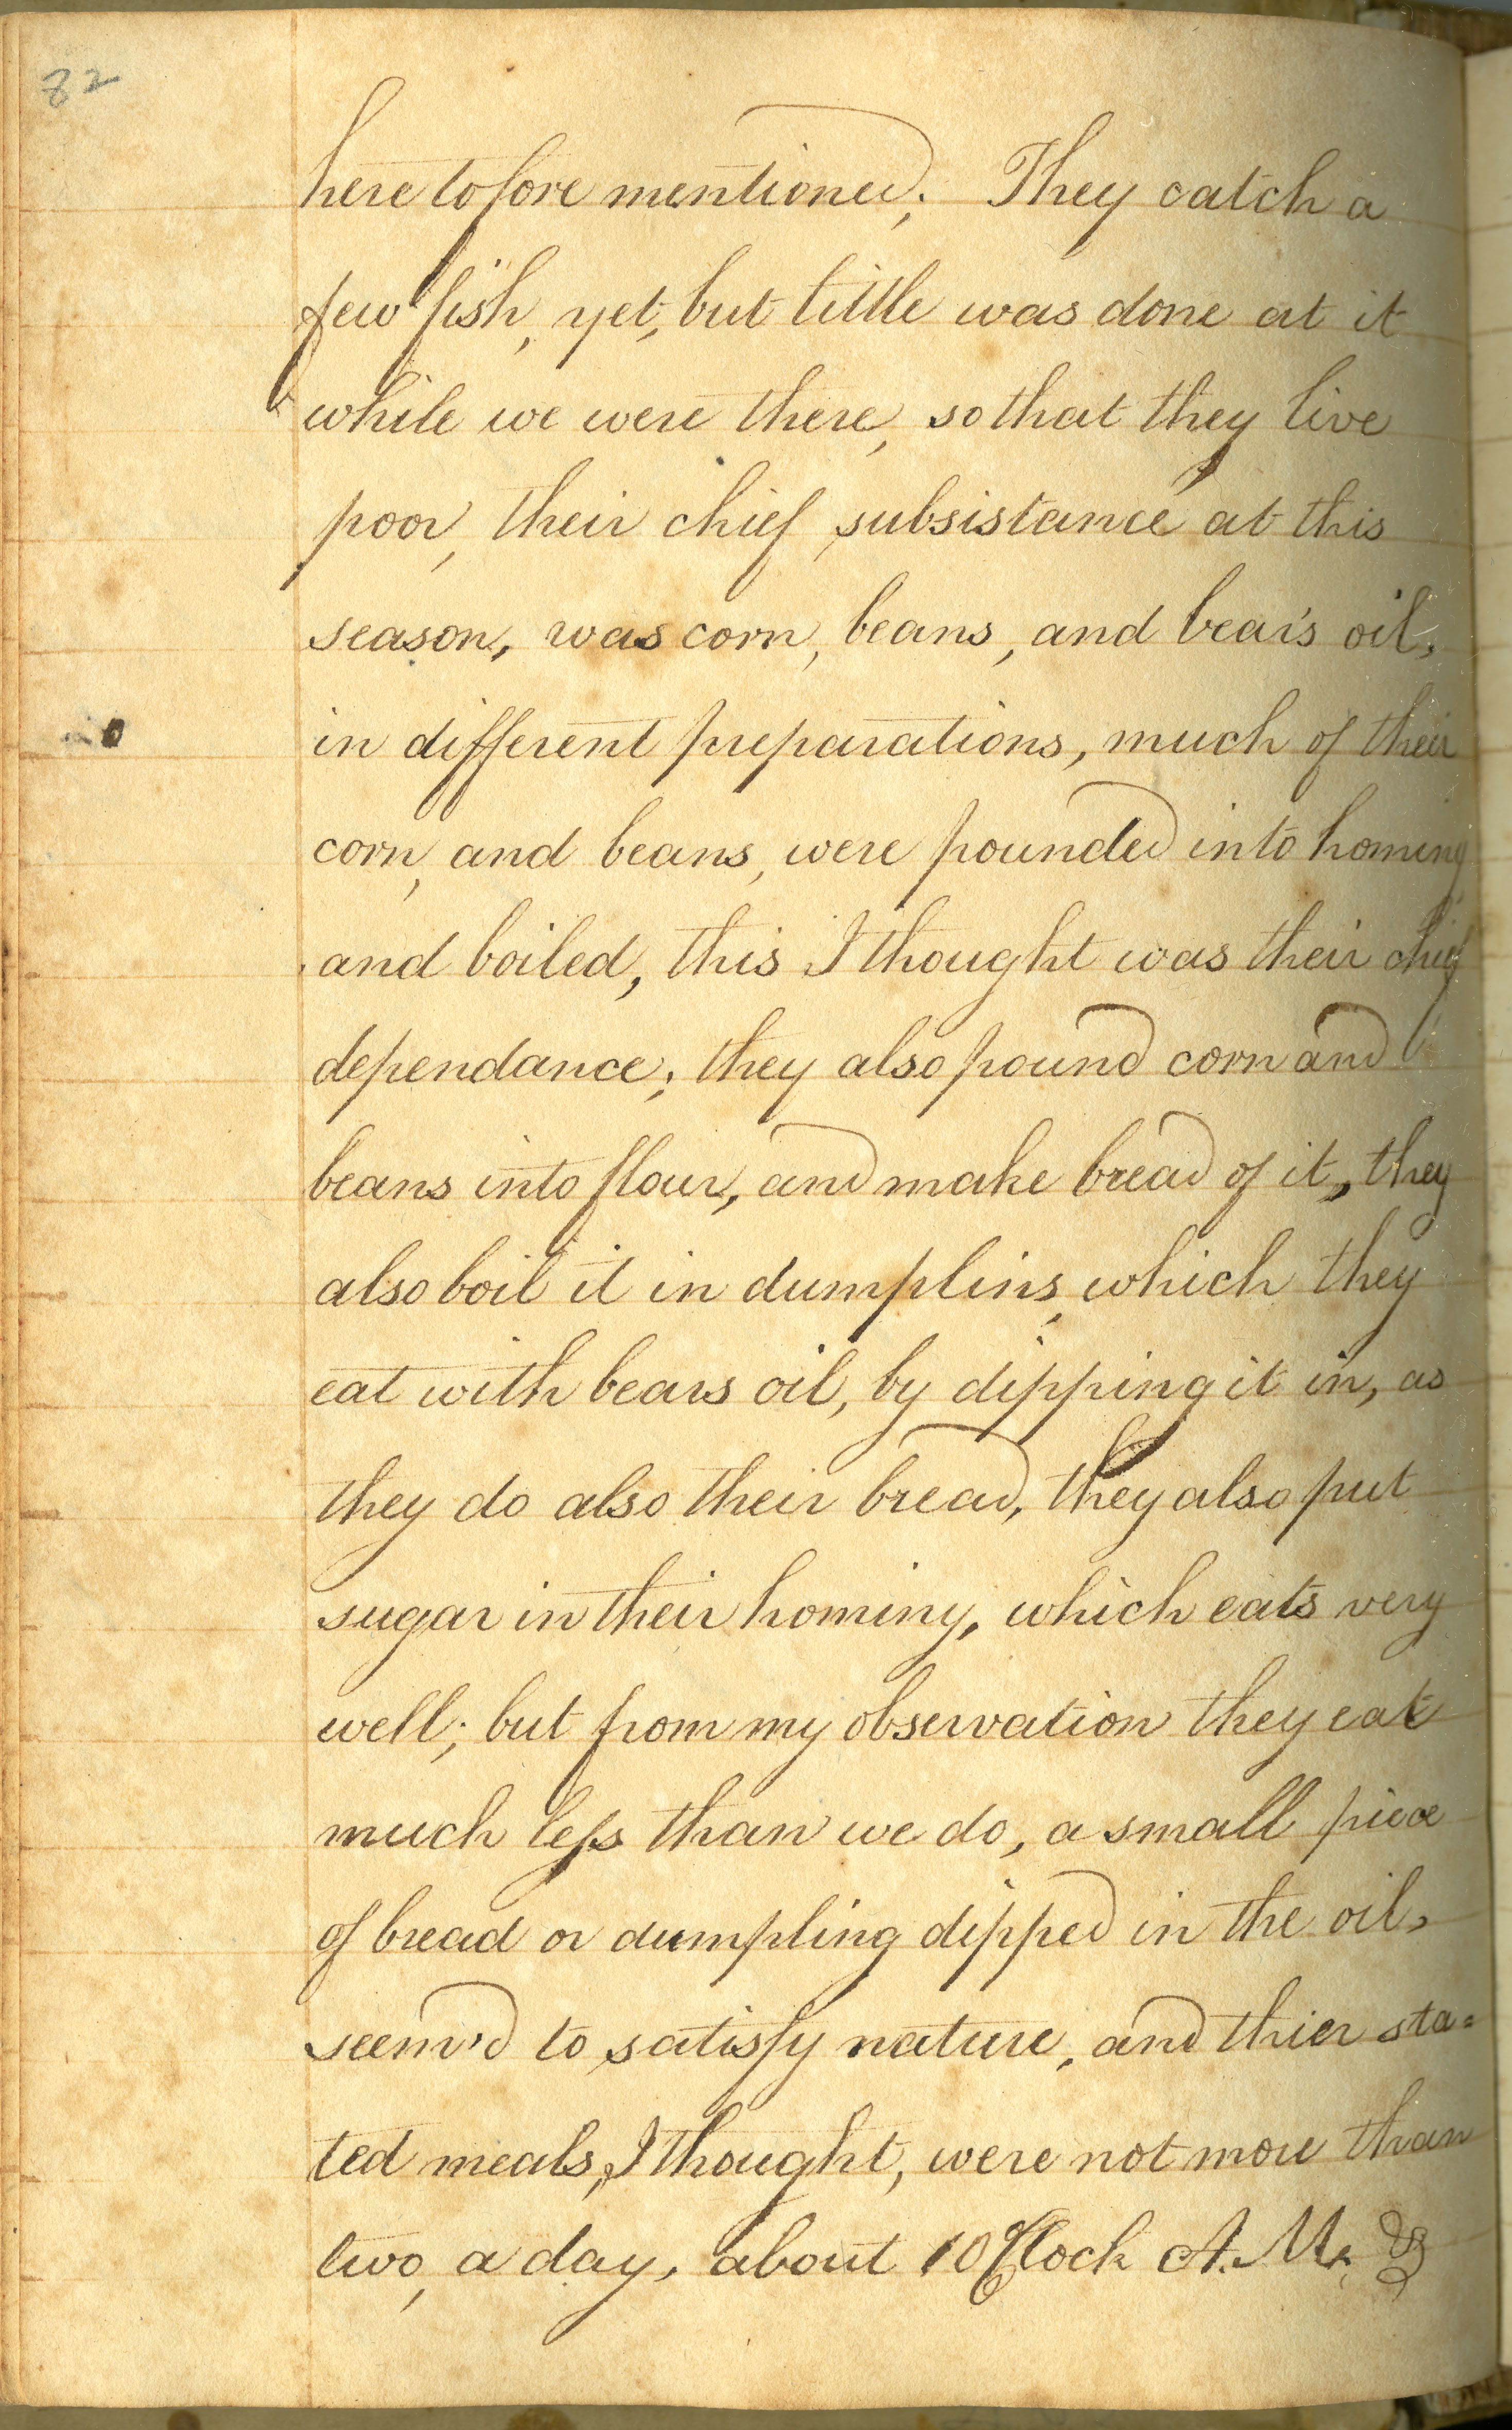 82
here tofore mentioned; They catch a
few fish, yet, but little was done at it
while we were there, so that they live
poor, their chief subsistance at this
season, was corn, beans, and bears oil,
in different preparations, much of their
corn, and beans, were pounded into hominy
and boiled, this I thought was their chief
dependance; they also pound corn and
beans into flour, and make bread of it, they
also boil it in dumplins, which they
eat with bears oil, by dipping it in, as
they do also their bread, they also put
sugar in their hominy, which eats very
well; but from my observation they eat
much less than we do, a small piece
of bread or dumpling dipped in the oil,
seem'd to satisfy nature, and thier sta=
ted meals, I thought, were not more than
two, a day, about 10 Clock A.M. &